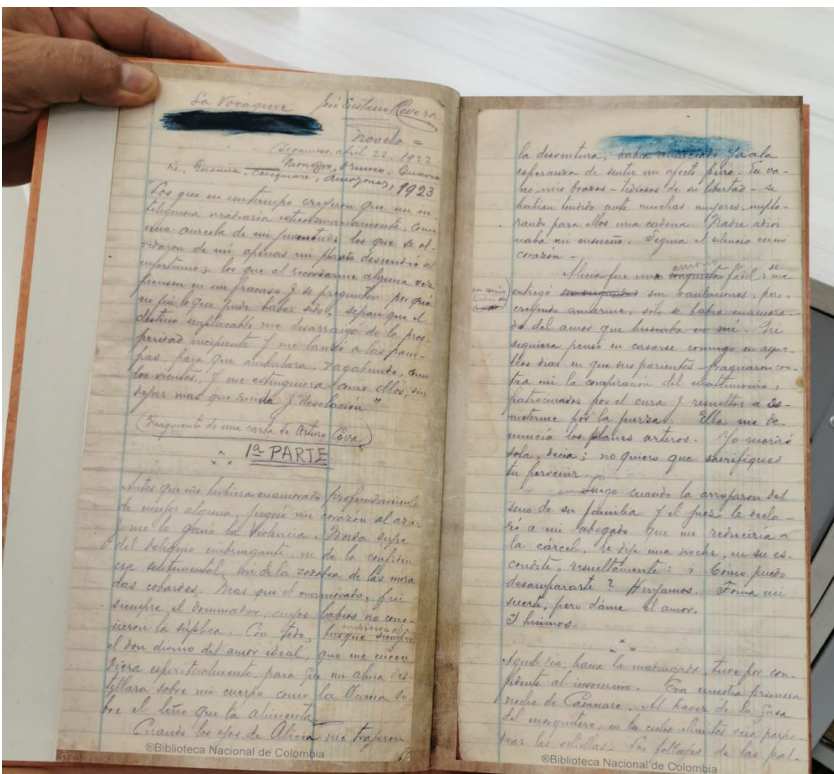 La Vorágine José Eustasio Rivera
Novela =
(Sogamoso, abril 22, 1922
Guainía, Casiquiare, Amazonas, 1923
"Los que en un tiempo creyeron que mi in-
teligencia irradiaría extraordinariamente, como
una aureola de mi juventud; los que se ol-
vidaron de mi apenas mi planta descendió al
infortunio; los que al recordarme alguna vez
piensen en mi fracaso y se pregunten por qué
no fuí lo que pude haber sido, sepan que el
destino implacable me desarraigó de la pros-
peridad incipiente y me lanzó a las pam-
pas, para que ambulara, vagabundo, como
los vientos, y me extinguiera como ellos, sin
dejar mas que ruido y desolación."
(Fragmento de una carta de Arturo Cova)
1ª PARTE
Antes que me hubiera enamorado profundamente
de mujer alguna, jugué mi corazón al azar
y me lo ganó la Violencia. Nada supe
del deliquio embriagante, ni de la confiden-
cia sentimental, ni de la zozobra de las mira-
das cobardes. Mas que el enamorado, fui
siempre el dominador, cuyos labios no cono-
cieron la súplica. Con todo,
el don divino del amor ideal, que me encen-
diera espiritualmente, para que mi alma des-
tellara sobre mi cuerpo como la llama so-
bre el leño que la alimenta.
Cuando los ojos de Alicia me trajeron
©Biblioteca Nacional de Colombia
la desventura, había renunciado ya a la
esperanza de sentir un afecto puro. En va-
no mis brazos - tediosos de su libertad - se
habían tendido ante muchas mujeres, implo-
rando para ellos una cadena. Nadie adivi-
naba mi ensueño. Seguía el silencio en mi
corazón -
Alicia fue un amorío fácil; se me
entregó sin vacilaciones, pero
creyendo amarme, solo se había enamora-
do del amor que buscaba en mí. Ni
siquiera pensó en casarse conmigo en aque-
llos días en que sus parientes fraguaron con-
tra mí la conspiración del matrimonio,
patrocinados por el cura y resueltos a so-
meterme por la fuerza. Ella me de-
nuncia los planes arteros. Yo moriré
sola, decía; no quiero que sacrifiques
tu porvenir.
Luego cuando la arrojaron del
seno de su familia y el juez le decla-
ró a mi abogado que me reduciría a
la cárcel, le dije una noche, en su es-
condite, resueltamente: ¿Cómo puedo
desampararte? Huyamos. Toma mi
suerte, pero dame el amor.
Y huimos.
Aquel día, hacia la madrugada, tuve por con-
fidente al insomnio. Era nuestra primera
noche de Casanare. Al través de la gasa
del mosquitero, en los cielos ilímites veía parpa-
dear las estrellas. Los follajes de las pal-
©Biblioteca Nacional de Colombia